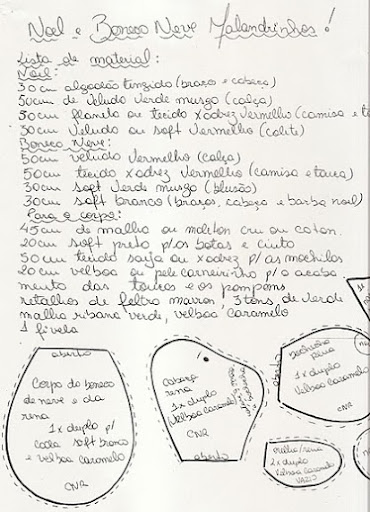 Noel e Boneco Neve Malandrinhos!
Lista de material:
Noel:
30cm algodão tingido (braços e cabeça)
50cm de veludo verde musgo (calça)
50cm flanela ou tecido xadrez vermelho (camisa e t
30cm Veludo ou soft vermelho (colite)
Boneco Neve:
50cm veludo vermelho (calça)
50cm tecido xadrez vermelho (camisa e touca)
30cm soft verde musgo (blusão)
30cm soft branco (braços, cabeça e barba noel)
Para o corpo:
45cm de malha ou moleton cru ou coton.
20cm soft preto p/os botas e cinto
50cm tecido sarja ou xadrez p/as mochilas
20cm velboa ou pele carneirinho p/o acaba
mento das toucas e os pompons
retalhos de feltro marron, 3 tons, de verde
malha ribana verde, velboa caramelo
1 fivela
aberto
Corpo do boneco
de neve e da
rena
1x duplo p/
cada soft branco
e velboa caramelo
CNR
Cabeça
rena
1x duplo
Velboa caramelo
CNR
aberto
aberto
rena
1x duplo
Velboa caramelo
CNR
orelha/rena
2x duplo
Velboa caramelo
VAZIO